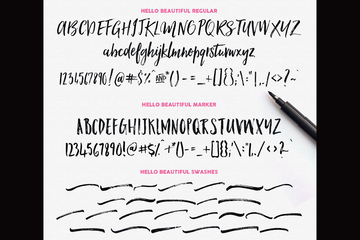 HELLO BEAUTIFUL REGULAR
ABCDEFGHIJKLMNOPQRSTUVWXYZ
abcdefghijklmnopqrstuvwxyz
1234567890!@#$%^&*()-=_+[]{};\:"|,./<>?~`
HELLO BEAUTIFUL MARKER
ABCDEFGHIJKLMNOPQRSTUVWXYZ
1234567890!@#$%^*()-=_+[]{};\:"|,./<>?~`
HELLO BEAUTIFUL SWASHES